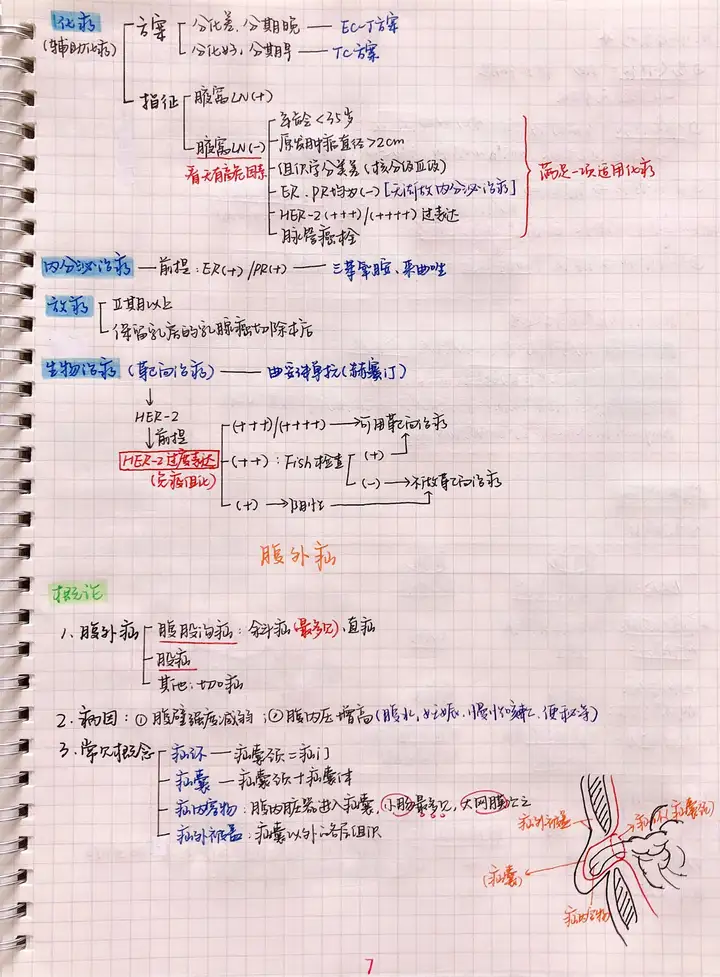 化疗
(辅助化疗)
方案
分化差、分期晚 —— EC-T方案
分化好,分期早 —— TC方案
指征
腋窝LN(+)
腋窝LN(-)
看无有高危因素
年龄<35岁
原发肿瘤直径>2cm
组织学分类差(核分级Ⅲ级)
ER、PR均为(-)[无法做内分泌治疗]
HER-2(+++)/(++++)过表达
脉管癌栓
满足一项适用化疗
内分泌治疗 — 前提:ER(+)/PR(+) —— 三苯氧胺、来曲唑
放疗
Ⅱ期以上
保留乳房的乳腺癌切除术后
生物治疗(靶向治疗) —— 曲妥珠单抗(赫赛汀)
HER-2
前提
HER-2过度表达
(免疫组化)
(+++)/(++++) → 可用靶向治疗
(++):Fish检查
(+)
(-) → 不做靶向治疗
(+) → 阴性
腹外疝
概论
1、腹外疝
腹股沟疝:斜疝(最多见)、直疝
股疝
其他:切口疝
2、病因:①腹壁强度减弱;②腹内压增高(腹水,妊娠,慢性咳嗽,便秘等)
3、常见概念
疝环 — 疝囊颈=疝门
疝囊 — 疝囊颈+疝囊体
疝内容物:腹内脏器进入疝囊,小肠最多见,大网膜次之
疝外被盖:疝囊以外的各层组织
疝外被盖
疝环(疝囊颈)
(疝囊)
疝内容物
7